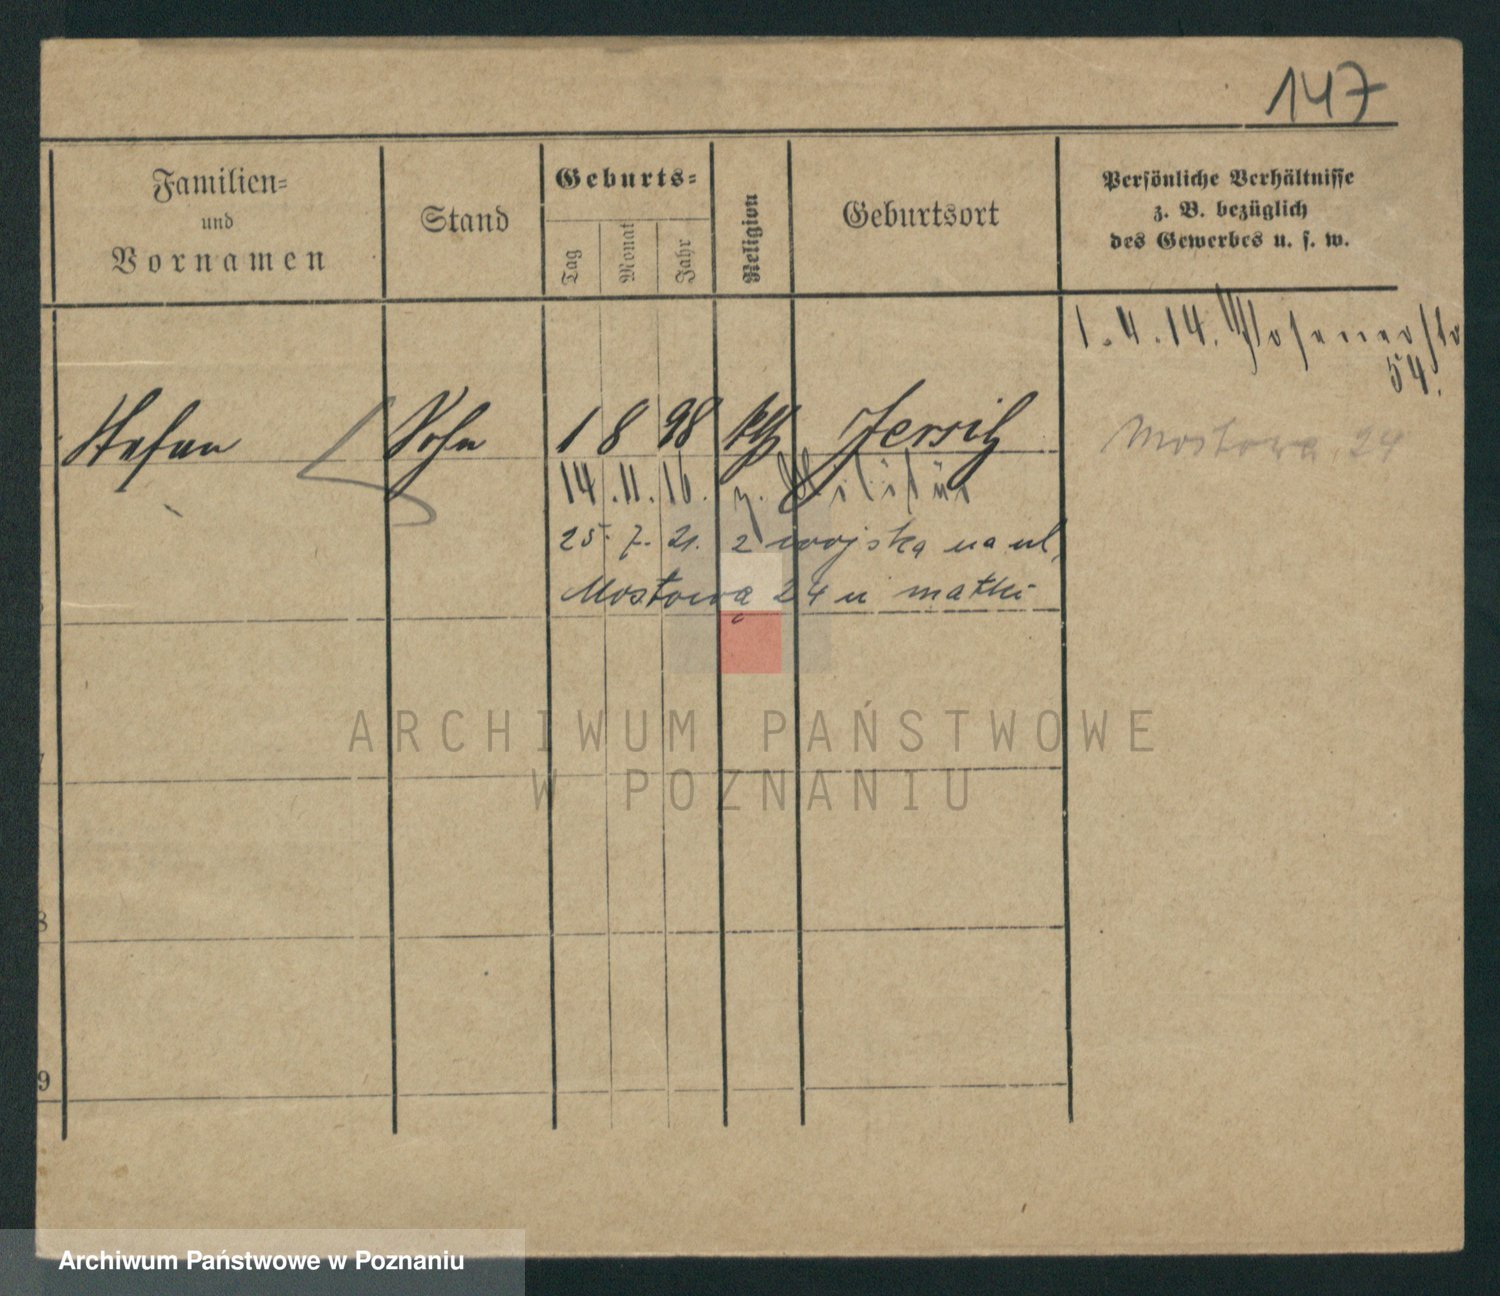 147
Familien=
und
Vornamen
Stand
Geburts=
Tag
Monat
Jahr
Religion
Geburtsort
Persönliche Verhältnisse
z. B. bezüglich
des Gewerbes u. s. w.
1.4.14. Posenerstr
54.
Stefan Sohn 1 8 98 kth Jersitz
Mostowa 24
14.11.16. z. Militär
25.7.21. z wojska na ul.
Mostową 24 u matki
8
9
ARCHIWUM PAŃSTWOWE
W POZNANIU
Archiwum Państwowe w Poznaniu